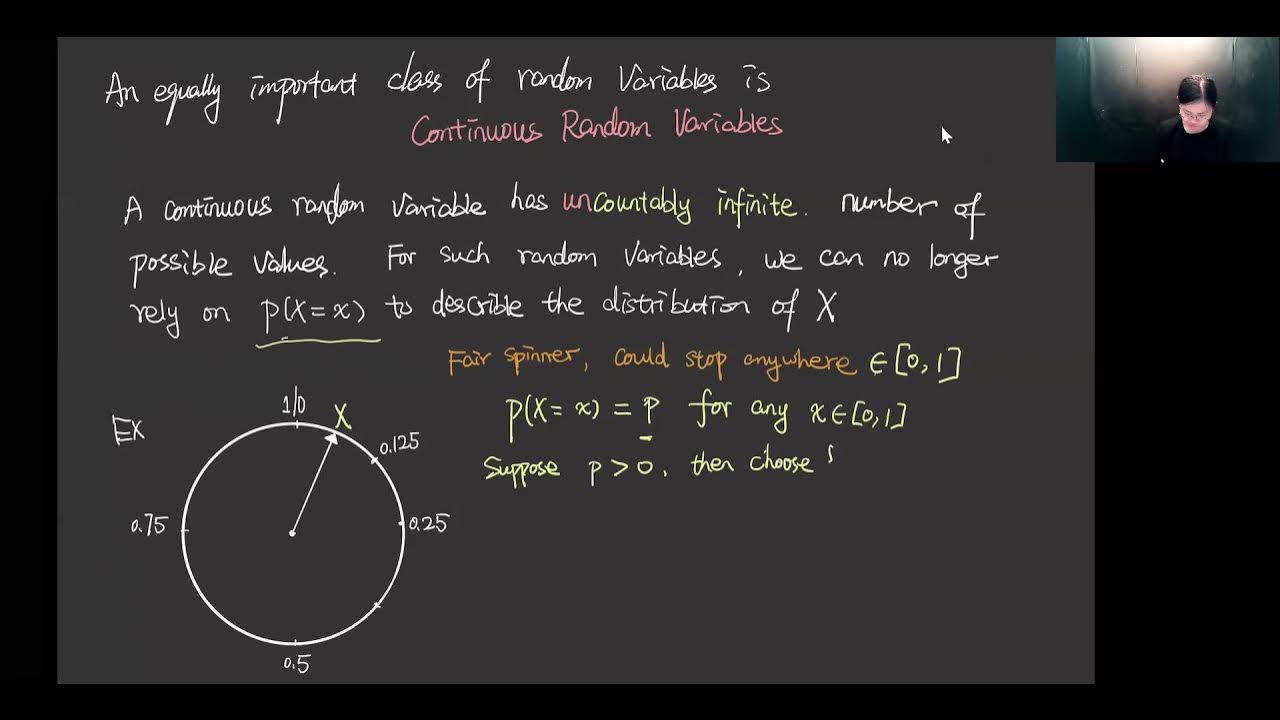 An equally important class of random Variables is
Continuous Random Variables
A continuous random variable has uncountably infinite. number of
possible values. For such random variables, we can no longer
rely on p(X=x) to describle the distribution of X
Fair spinner, could stop anywhere ∈[0,1]
p(X=x) = p for any x∈[0,1]
Suppose p>0, then choose
EX
1/0
X
0.125
0.75
0.25
0.5